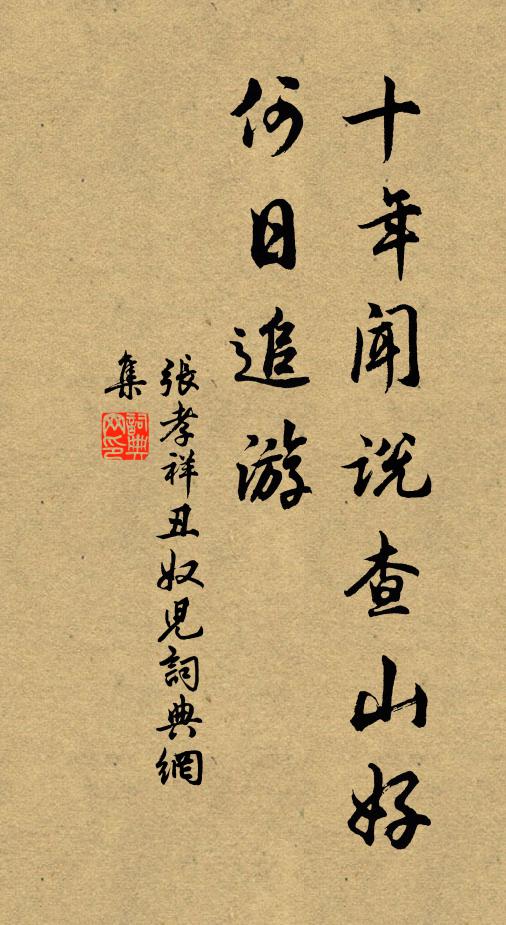 十年闻说查山好
何日追游
張孝祥丑奴児詞典網
集
詞典
网印